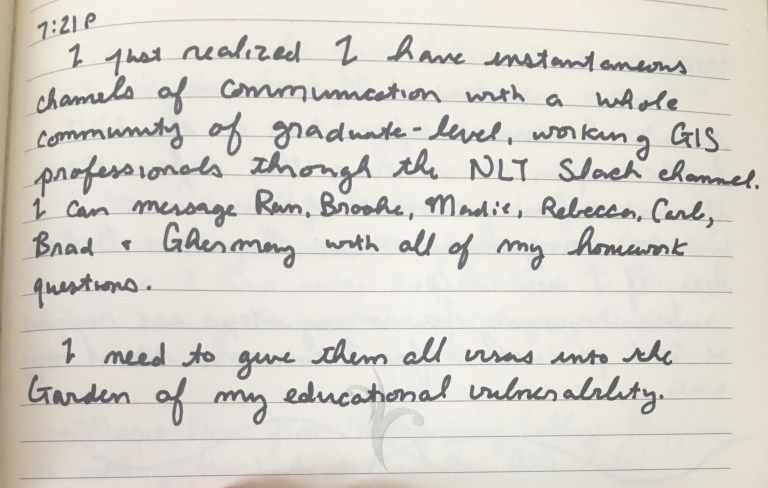 7:21 P
I just realized I have instantaneous
channels of communication with a whole
community of graduate-level, working GIS
professionals through the NLT Slack channel.
I can message Ram, Brooke, Madie, Rebecca, Carl,
Brad & Ghermay with all of my homework
questions.
I need to give them all visas into the
Garden of my educational vulnerability.